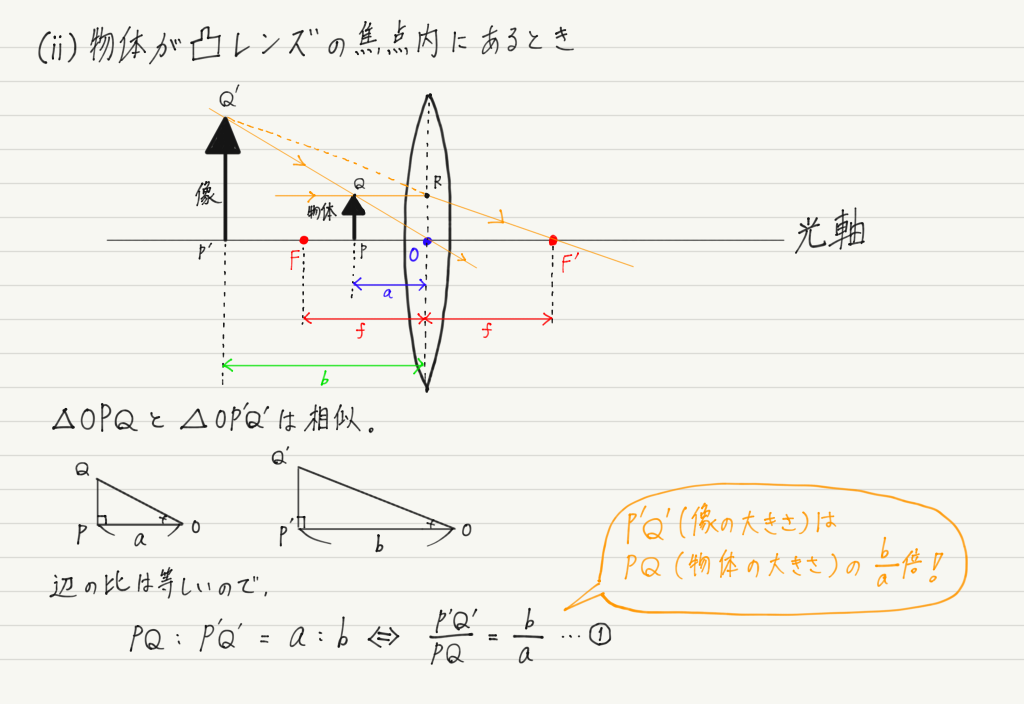 (ii) 物体が凸レンズの焦点内にあるとき
Q'
像
物体
Q
R
P'
F
P
O
F'
光軸
a
f
f
b
△OPQと△OP'Q'は相似。
Q
P
a
O
Q'
P'
b
O
P'Q'(像の大きさ)は
PQ(物体の大きさ)の b/a 倍!
辺の比は等しいので,
PQ : P'Q' = a : b ⇔ P'Q'/PQ = b/a … ①